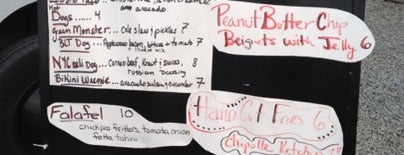 avocado
Dogs.....4
Green Monster... Cole slaw / pickles 7
BLT Dog... Applewood bacon, lettuce + tomato 7
NYC Deli Dog... Corned beef, Kraut, swiss, 8
russian dressing
Bikini Weenie... avocado salsa, cucumber 7
Falafel 10
chickpea fritters, tomato, onion
fetta, tahini
Peanut Butter Chip
Beignets with Jelly 6
Hand Cut Fries 6
Chipotle Ketchup